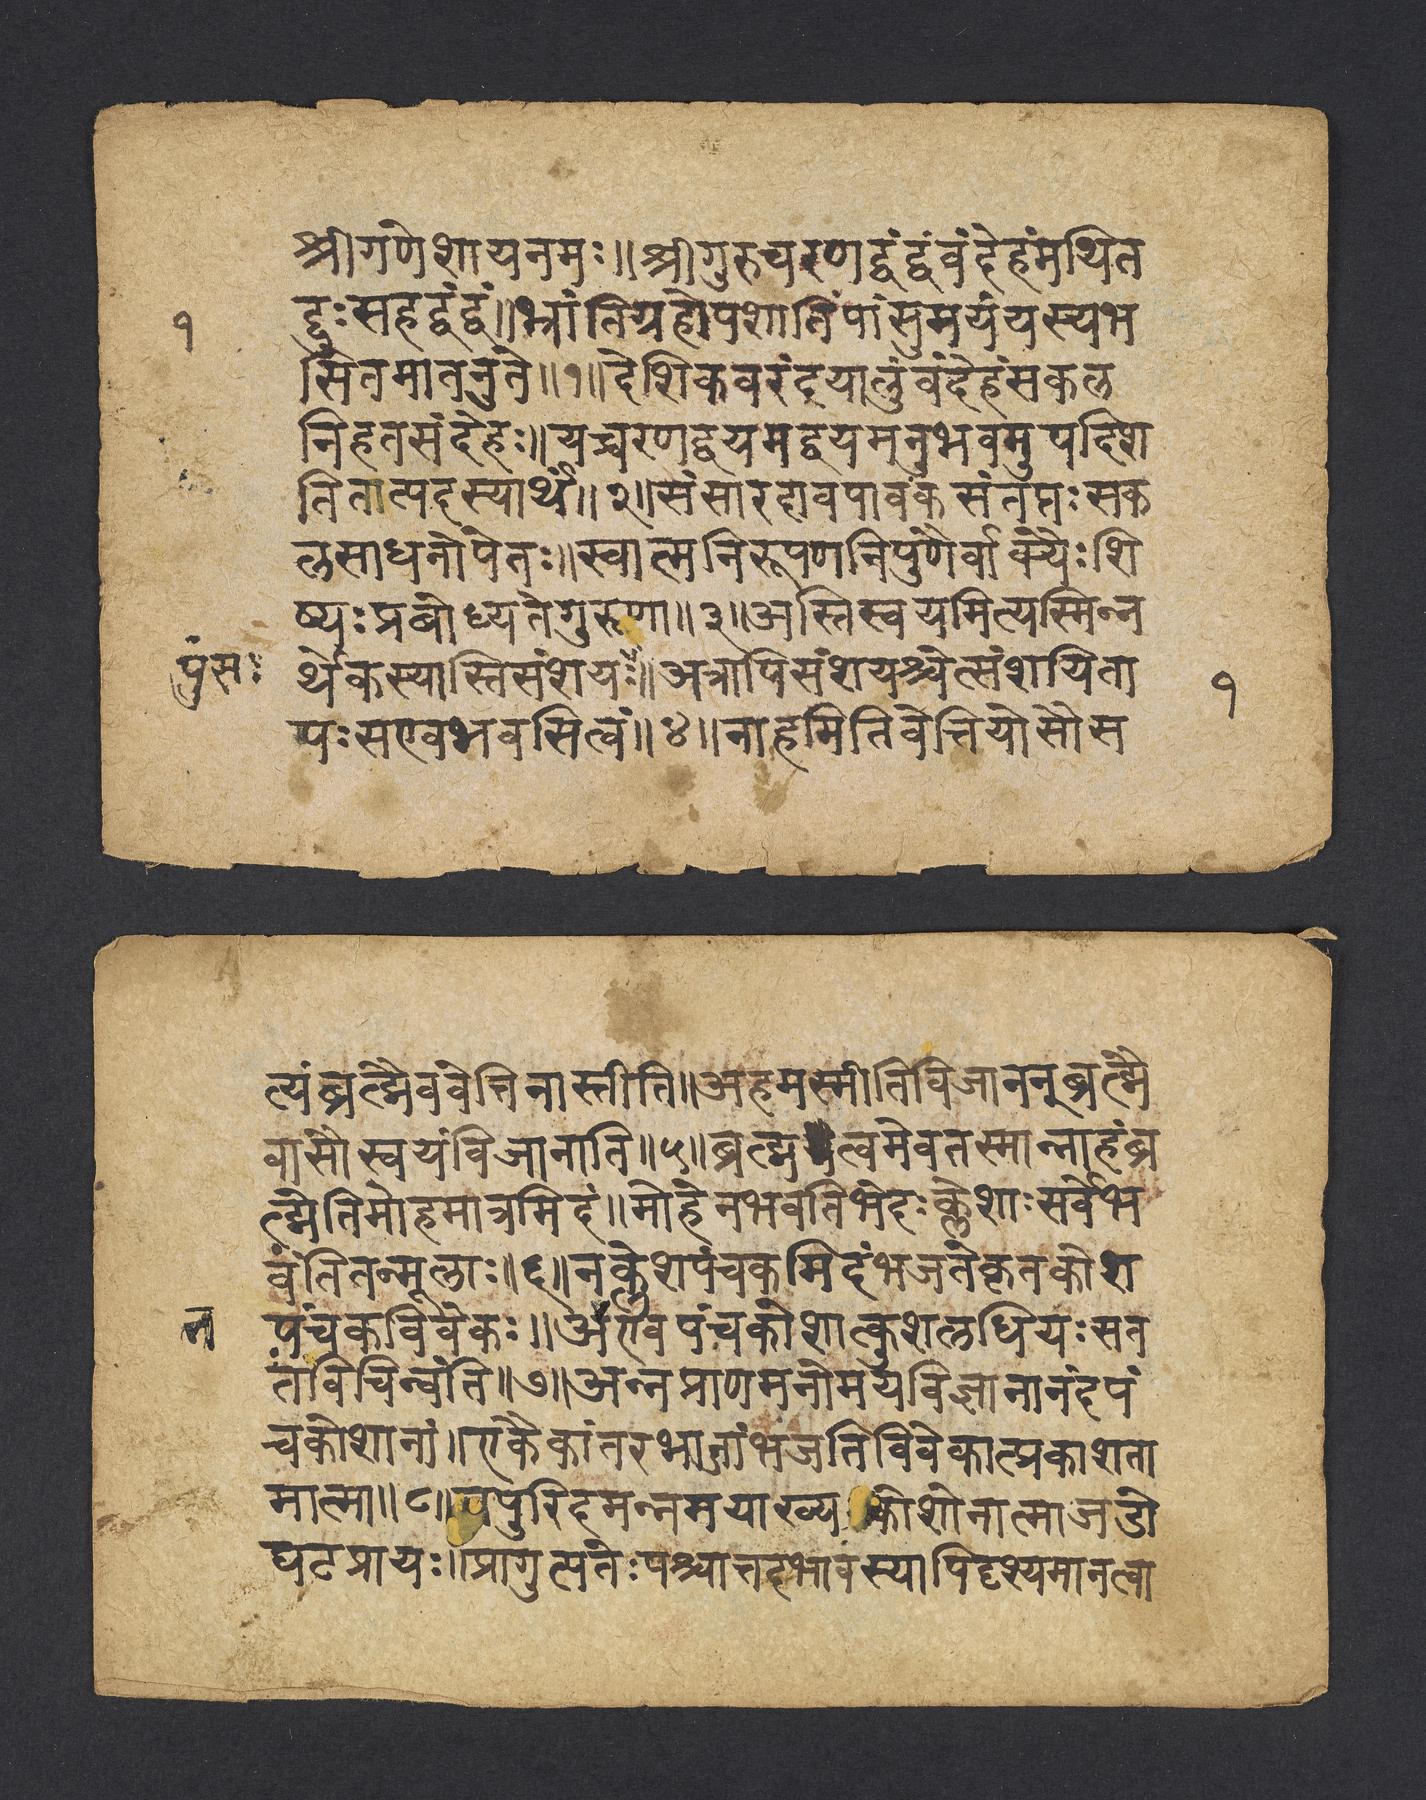 श्रीगणेशायनमः॥श्रीगुरुचरणद्वंद्वंवंदेहंमथित
१
दुःसहद्वंद्वं॥भ्रांतिग्रहोपशांतिंपांसुमयंयस्यभ
सितमातनुते॥१॥देशिकवरंदयालुंवंदेहंसकल
निहतसंदेहः॥यच्चरणद्वयमद्वयमनुभवमुपदिश
तितात्पदस्यार्थं॥२॥संसारदावपावकसंतप्तःसक
लसाधनोपेतः॥स्वात्मनिरूपणनिपुणैर्वाक्यैःशि
ष्यःप्रबोध्यतेगुरूणा॥३॥अस्तिस्वयमित्यस्मिन्न
पुंसः
र्थेकस्यास्तिसंशयः॥अत्रापिसंशयश्चेत्संशयिता
१
यःसएवभवसित्वं॥४॥नाहमितिवेत्तियोसौस
त्यंब्रह्मैववेत्तिनास्तीति॥अहमस्मीतिविजाननूब्रह्मै
वासौस्वयंविजानाति॥५॥ब्रह्मत्वमेवतस्मान्नाहंब्र
ह्मेतिमोहमात्रमिदं॥मोहेनभवतिभेदःक्लेशाःसर्वेभ
वंतितन्मूलाः॥६॥नक्लेशपंचकमिदंभजतेकृतकोश
न
पंचकविवेकः॥अएवपंचकोशात्कुशलधियःसत
तंविचिन्वंति॥७॥अन्नप्राणमनोमयविज्ञानानंदपं
चकोशानां॥एकैकांतरभाजांभजतिविवेकात्प्रकाशता
मात्मा॥८॥वपुरिदमन्नमयाख्यकोशोनात्माजडो
घटप्रायः॥प्रागुत्पतेःपश्चात्तदभावस्यापिदृश्यमानत्वा